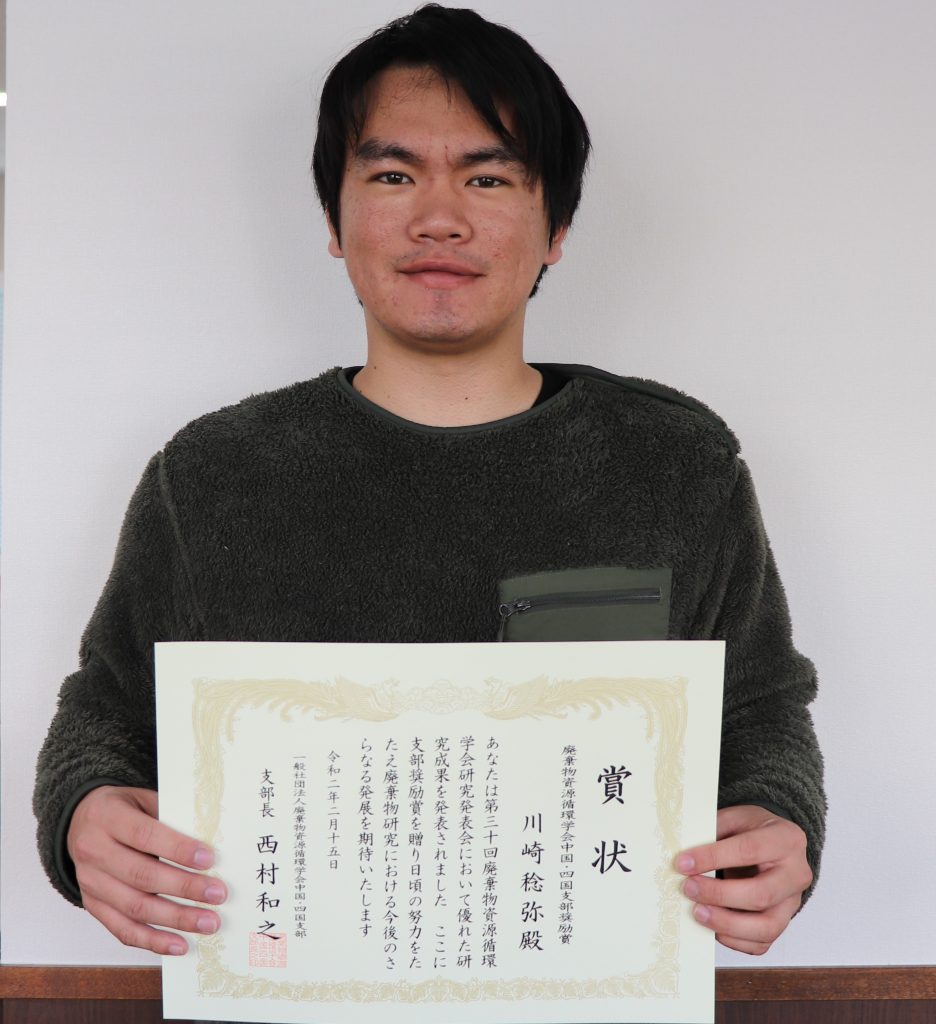 賞状
廃棄物資源循環学会中国・四国支部奨励賞
川崎稔弥殿
あなたは第三十回廃棄物資源循環
学会研究発表会において優れた研
究成果を発表されました　ここに
支部奨励賞を贈り日頃の努力をた
たえ廃棄物研究における今後のさ
らなる発展を期待いたします
令和二年二月十五日
一般社団法人廃棄物資源循環学会中国・四国支部
支部長　西村和之